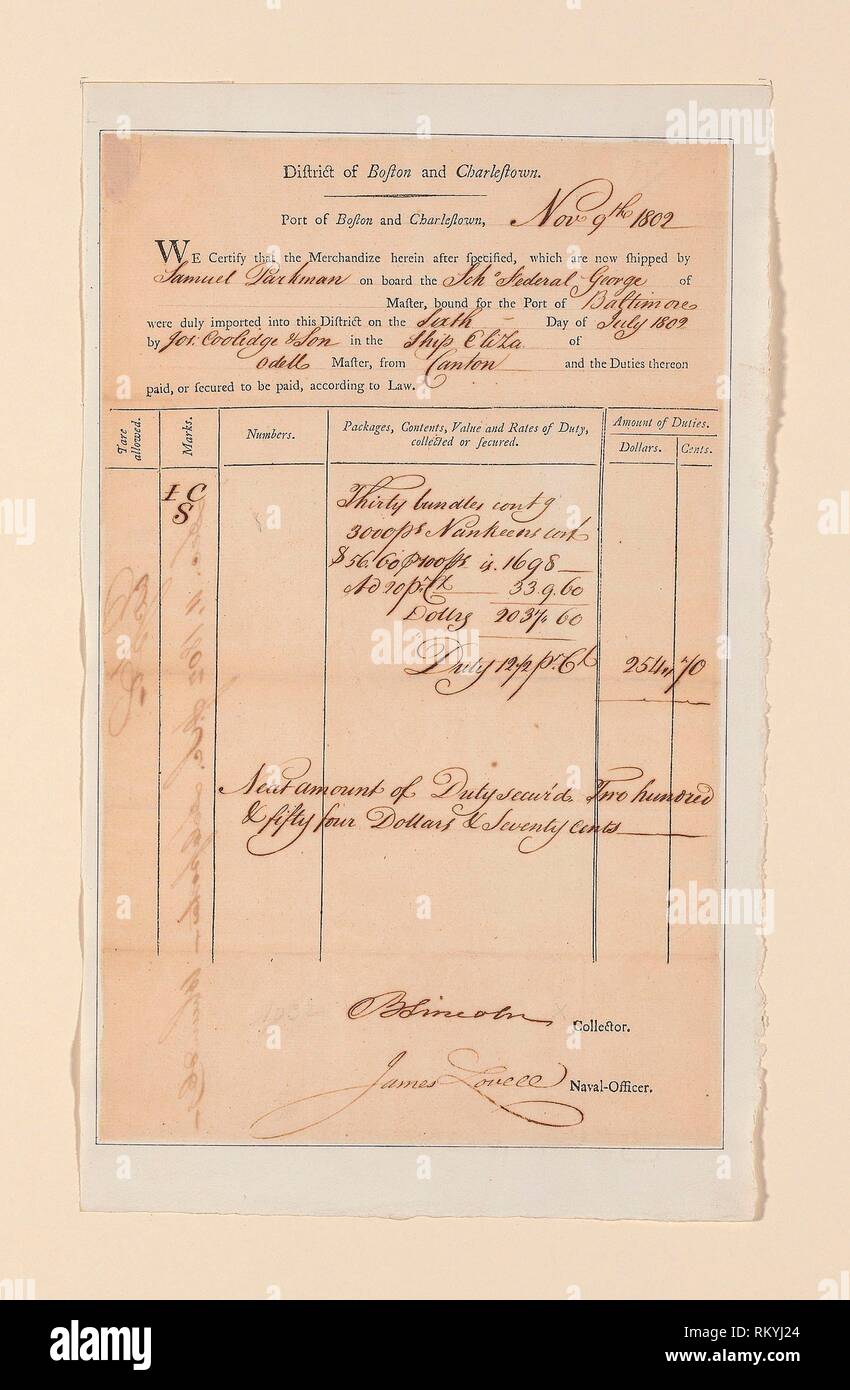 Diſtrict of Boſton and Charleſtown.
Port of Boſton and Charleſtown, Nov 9th 1802
WE Certify that the Merchandize herein after ſpecified, which are now ſhipped by
Samuel Parkman on board the Schº Federal George of
Maſter, bound for the Port of Baltimore
were duly imported into this Diſtrict on the Sixth Day of July 1802
by Jos. Coolidge & Son in the Ship Eliza of
Odell Maſter, from Canton and the Duties thereon
paid, or ſecured to be paid, according to Law.
Tare allowed.
Marks.
Numbers.
Packages, Contents, Value and Rates of Duty, collected or ſecured.
Amount of Duties.
Dollars. Cents.
I C
S
Thirty bundles contg
3000ps Nankeens cost
$56.60 100ps is 1698
Ad 20 pr Ct 339.60
Dollrs 2037 60
Duty 12½ pr Ct 254,,70
Neat amount of Duty secur'd Two hundred
& fifty four Dollars & Seventy Cents
B Lincoln Collector.
James Lovell Naval-Officer.
alamy
Image ID: RKYJ24
www.alamy.com